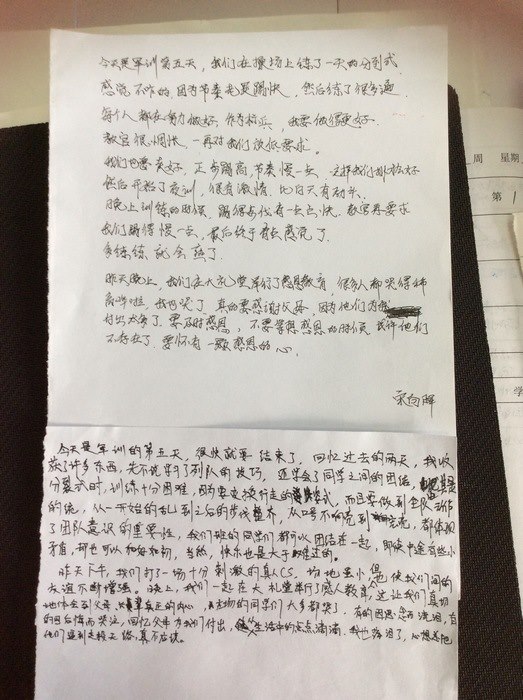 今天是军训第五天，我们在操场上练了一天的分列式
感觉不咋的因为节奏老是踢快，然后练了很多遍
每个人都在努力做好，作为标兵，我要做得更好
教官很惆怅 一再对我们放低要求。
我们也要求好，正步踢高，节奏慢一点，这样我们排松好
然后开始了夜训，很有激情，比白天有劲头。
晚上训练的时候，踢得还有一点点快，教官再要求
我们踢得慢一点，最后终于有点感觉了
多练练就会熟了
昨天晚上，我们在大礼堂举行了感恩教育，很多人都哭得稀
哩哗啦，我也哭了，真的要感谢父母，因为他们为我
付出太多了，要及时感恩，不要等想感恩的时候，或许他们
不存在了，要怀有一颗感恩的心。
周 星期
第 1
今天是军训的第五天，很快就要结束了，回忆过去的两天，我收
获了许多东西，先不说学习了列队的技巧，还学会了同学之间的团结，
分裂式时，训练十分困难，因为要变换行走的模式，而且要做到全队动作
的统，从一开始的乱到之后的步伐整齐，从口号不响亮到响亮，都体现
了团队意识的重要性，我们班的同学们都可以团结在一起，即使中途有些小
矛盾，却也可以和好如初，当然，快乐也是大于难过的。
昨天下午，我们打了一场十分刺激的真人CS，场地虽小，但也使我们间的
友谊不断增强。晚上，我们一起在大礼堂举行了感人教育，这让我们真切
地体会到父母，真正的内心，在场的同学们大多都哭了，有的因思念而流泪，有
的因后悔而哭泣，回忆父母为我们付出，生活中的点点滴滴，我也落泪了，心想着他
们